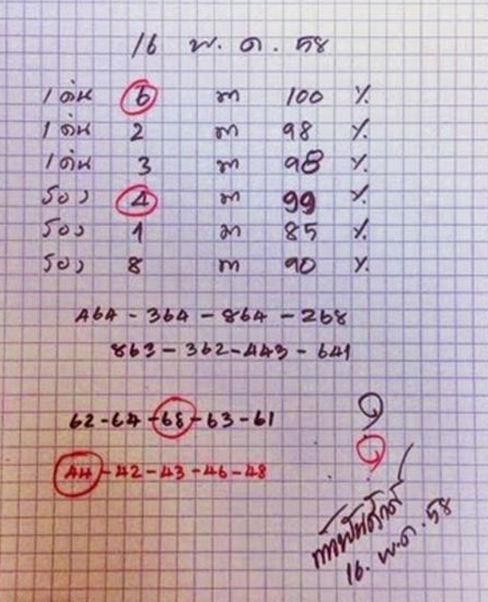 16 พ.ค. 58
1 เด่น 6 มา 100 %
1 เด่น 2 มา 98 %
1 เด่น 3 มา 98 %
รอง 4 มา 99 %
รอง 1 มา 85 %
รอง 8 มา 90 %
464 - 364 - 864 - 268
863 - 362 - 443 - 641
62 - 64 - 68 - 63 - 61
44 - 42 - 43 - 46 - 48
16. พ.ค. 58